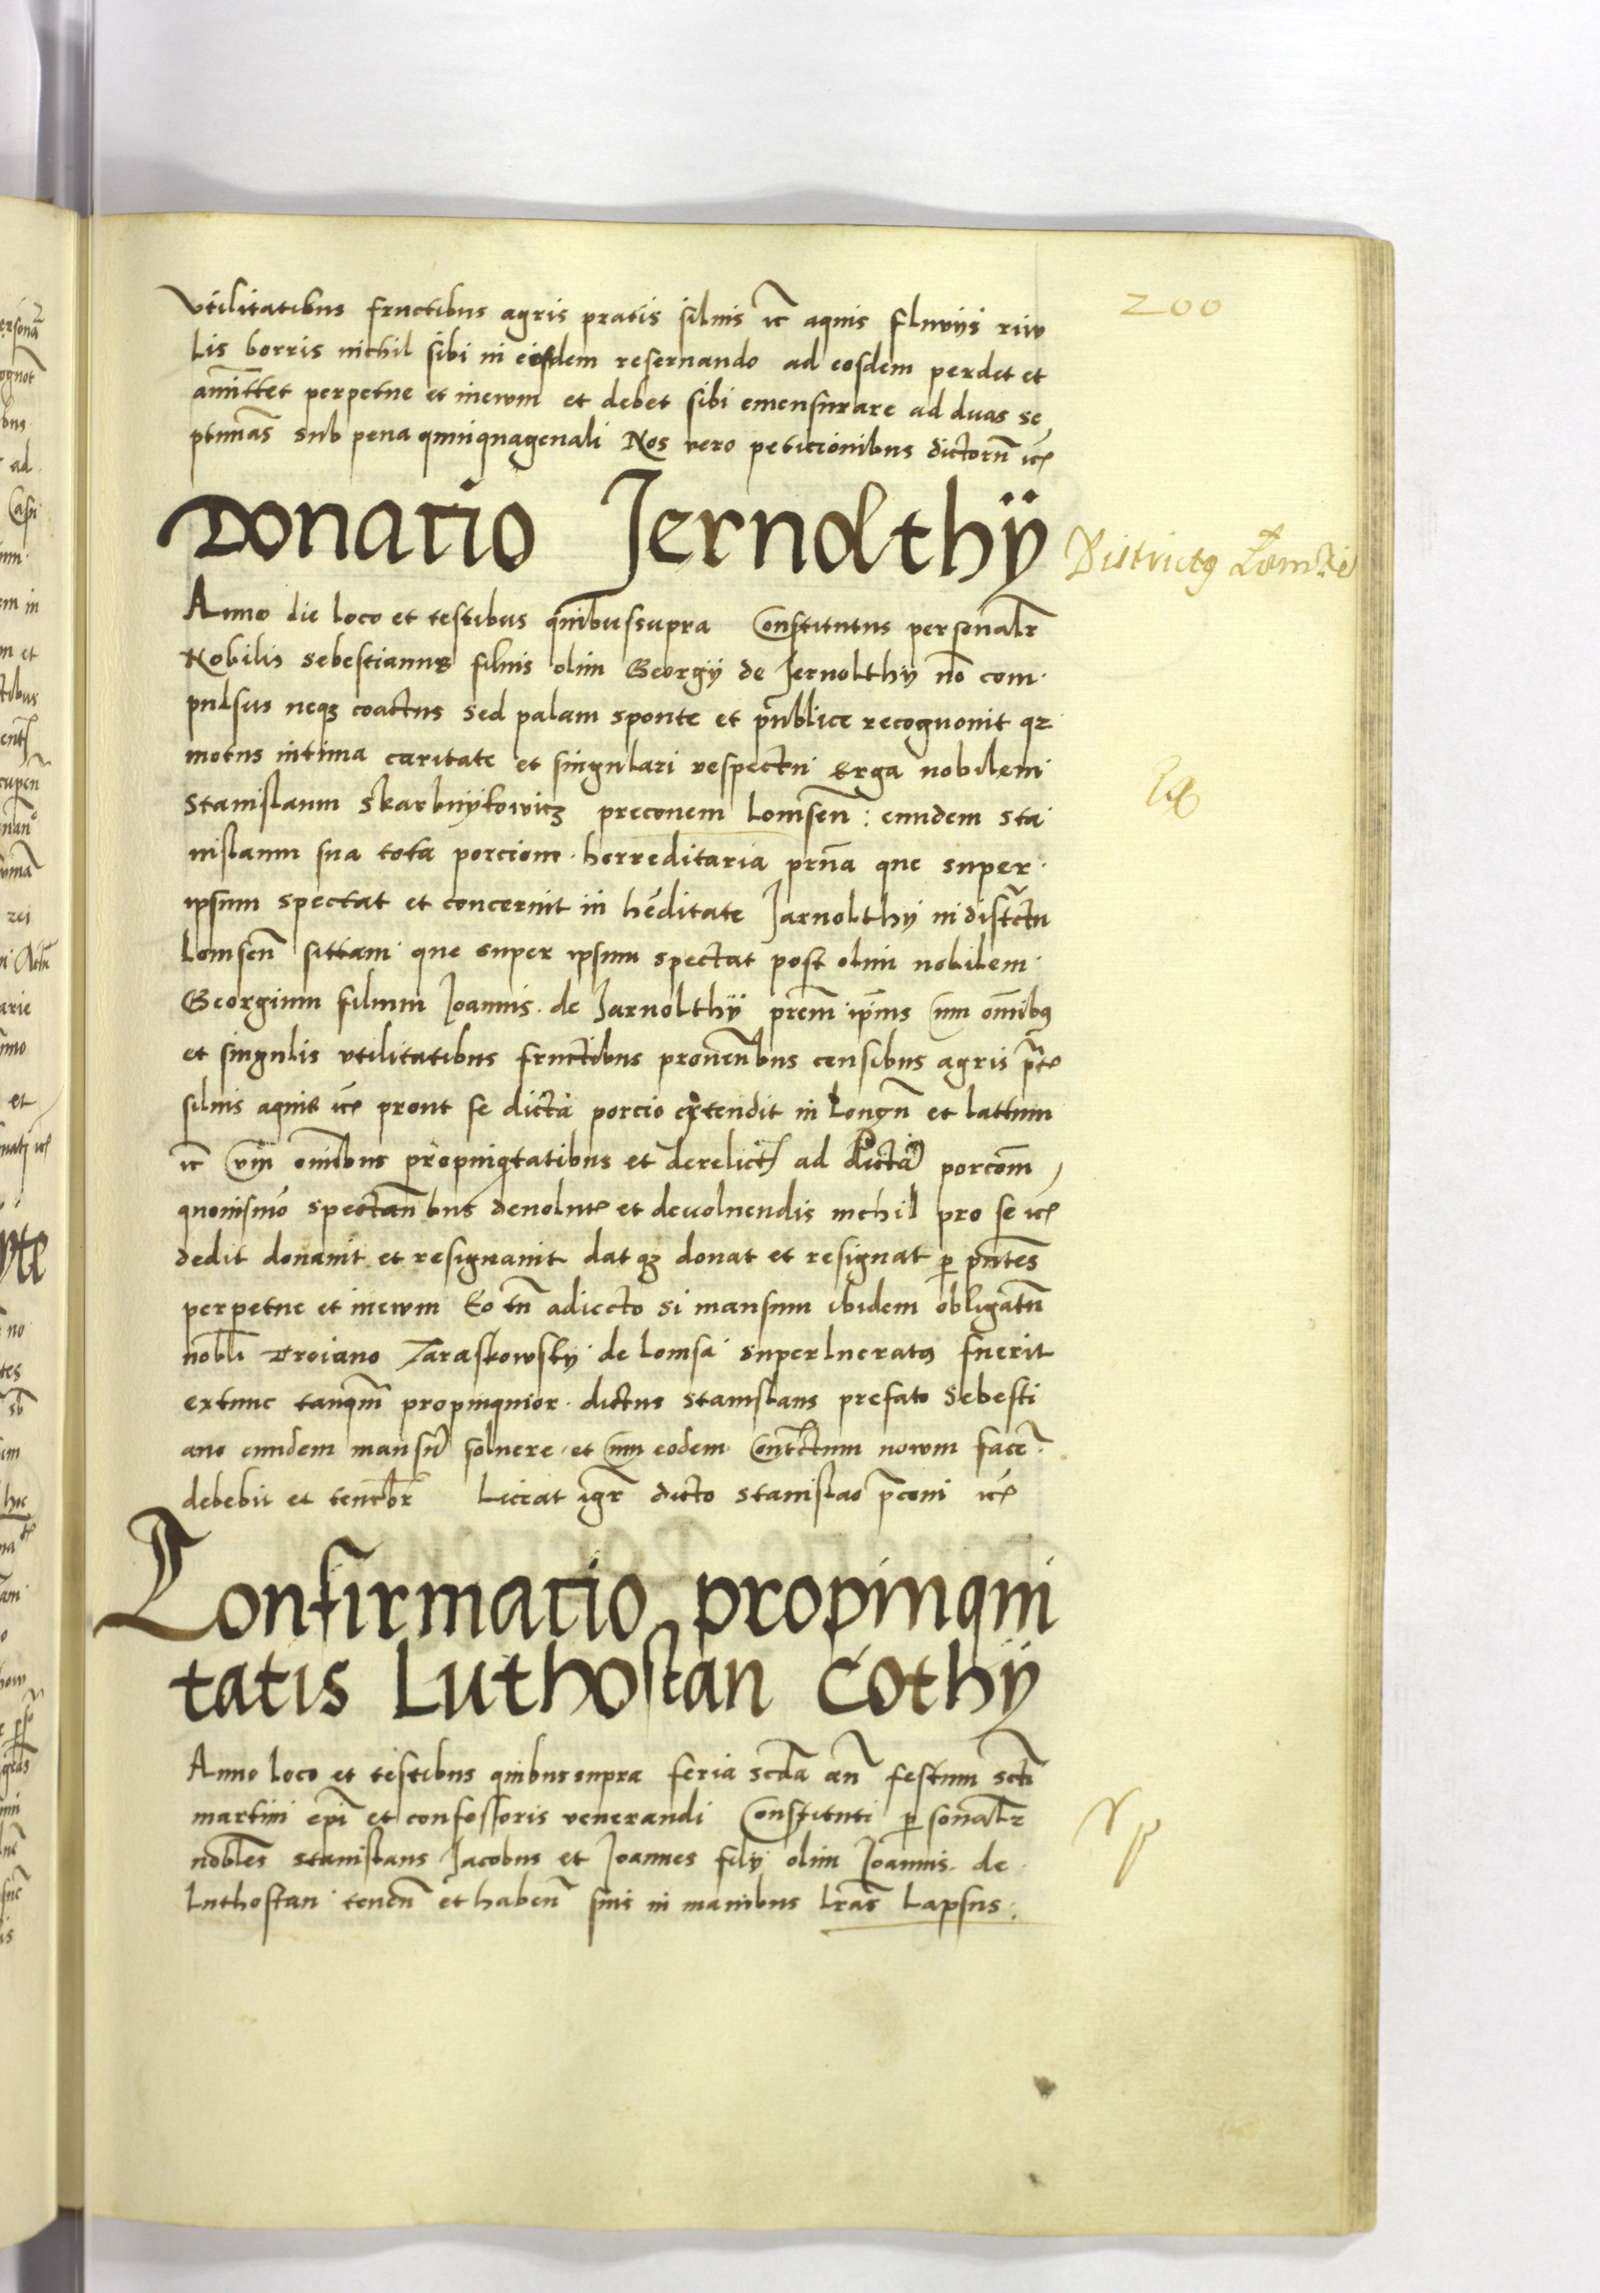 200
vtilitatibus fructibus agris pratis siluis ic̃ aquis fluvijs riw
lis borris nichil sibi in eisdem reseruando ad eosdem perdet et
amittet perpetue et inewm et debet sibi emensurare ad duas se
ptimãs sub pena quinquagenali Nos vero peticionibus dictorũ ic̃
Donatio Jernolthÿ
Districtꝰ Łomże
Anno die loco et testibus quibussupra Constitutus personalr̃
Nobilis sebestianus filius olim Georgÿ de Jernolthÿ nõ com
pulsus neqꝫ coactus sed palam sponte et publice recognouit qz
motus intima caritate et singulari respectu Erga nobilem
Stanislaum skarbnÿkowicz preconem Lomseñ: eundem sta
nislaum sua tota porcione herreditaria prña que super
ipsum spectat et concernit in hẽditate Jarnolthÿ in distr̃ctu
Lomseñ sittam que super ipsum spectat post olim nobilem
Georgium filium Joannis de Jarnolthÿ prem̃ ip̃ius cum om̃ibꝰ
et singulis vtilitatibus fructibus prouen̄bus censibus agris pr̃t
siluis aquis ic̃ prout se dicta porcio extendit in Longũ et lattum
ic̃ cum om̃ibus propinqtatibus et derelict ad dictã porcom̃
quouismõ spectañbus deuolut et deuoluendis nichil pro se ic̃
dedit donauit et resignauit dat qꝫ donat et resignat p pñtes
perpetue et inewm Eo tñ adiecto si mansum ibidem obligatũ
nobli Troiano Zaraskowskÿ de lomsa superlucratꝰ fuerit
extunc tanqm̃ propinquior dictus stanislaus prefato Sebesti
ano eundem mansũ soluere et cum eodem Contr̃ctum nowm facẽ
debebit et tenebr̃ Liceat igr̃ dicto stanislao p̃coni ic̃
Confirmatio propinqui
tatis Luthostan Cothÿ
Anno loco et testibus quibussupra feria scd̃a añ festum scti
martini ep̃i et confessoris venerandi Constituti p sonalr̃
nobles stanislaus Jacobus et Joannes filÿ olim Joannis de
Luthostan teneñ et habeñ suis in manibus lr̃as Lapsus